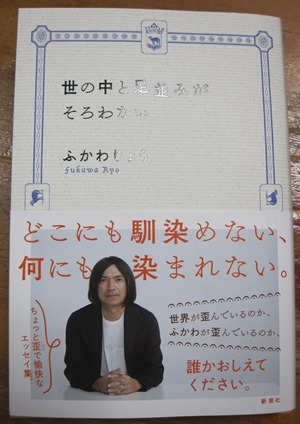 世の中と足並みが
そろわない
ふかわりょう
Fukawa Ryo
どこにも馴染めない、
何にも染まれない。
ちょっと歪で愉快な
エッセイ集。
世界が歪んでいるのか、
ふかわが歪んでいるのか、
誰かおしえて
ください。
新潮社